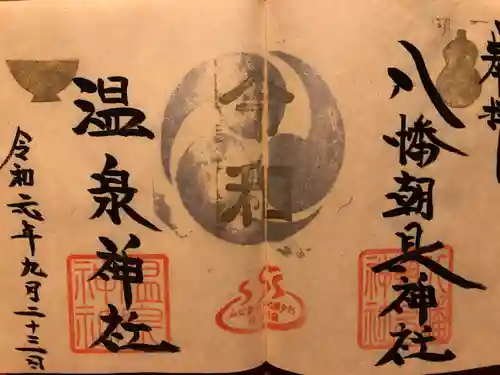 奉拝
八幡朝見神社
令和
温泉神社
令和元年九月二十三日
温泉神社